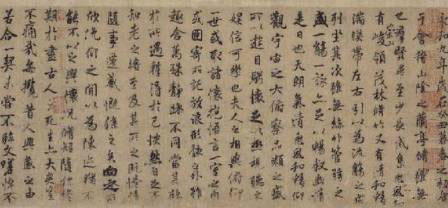 和九年歲在癸丑暮春之初會
于會稽山陰之蘭亭脩稧事
也羣賢畢至少長咸集此地
有峻領茂林脩竹又有清流激
湍暎帶左右引以為流觴曲水
列坐其次雖無絲竹管弦之
盛一觴一詠亦足以暢敘幽情
是日也天朗氣清惠風和暢仰
觀宇宙之大俯察品類之盛
所以遊目騁懷足以極視聽之
娛信可樂也夫人之相與俯仰
一世或取諸懷抱悟言一室之內
或因寄所託放浪形骸之外雖
趣舍萬殊靜躁不同當其欣
於所遇蹔得於己快然自足不
知老之將至及其所之既惓情
隨事遷感慨係之矣向之所
欣俛仰之閒以為陳迹猶不
能不以之興懷況脩短隨化終
期於盡古人云死生亦大矣豈
不痛哉每攬昔人興感之由
若合一契未嘗不臨文嗟悼不